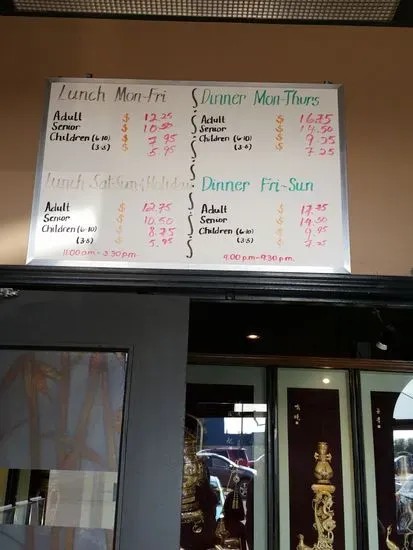 Lunch Mon-Fri
Adult $ 12.25
Senior $ 10.50
Children (6-10) $ 7.95
(3-5) $ 5.95
Dinner Mon-Thurs
Adult $ 16.75
Senior $ 14.50
Children (6-10) $ 9.25
(3-5) $ 7.25
Lunch Sat-Sun & Holiday
Adult $ 12.75
Senior $ 10.50
Children (6-10) $ 8.75
(3-5) $ 5.95
11:00am-3:30pm
Dinner Fri-Sun
Adult $
Senior $
Children (6-10) $ 9.95
(3-5) $ 7.25
4:00pm-9:30pm